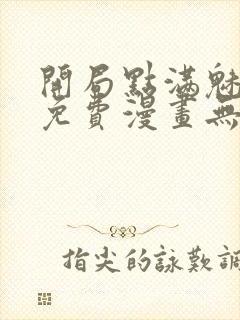 開局點滿魅
免費漫畫無
指尖的詠歎調